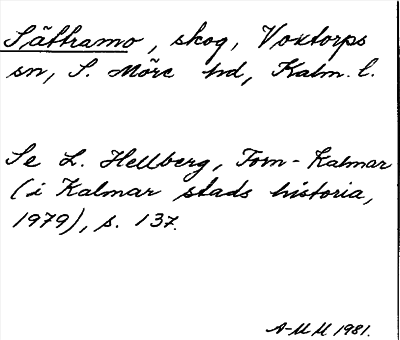 Sättramo, skog, Voxtorps
sn, S. Möre hd, Kalm. l.
Se L. Hellberg, Forn-Kalmar
(i Kalmar stads historia,
1979), s. 137.
A-MM 1981.